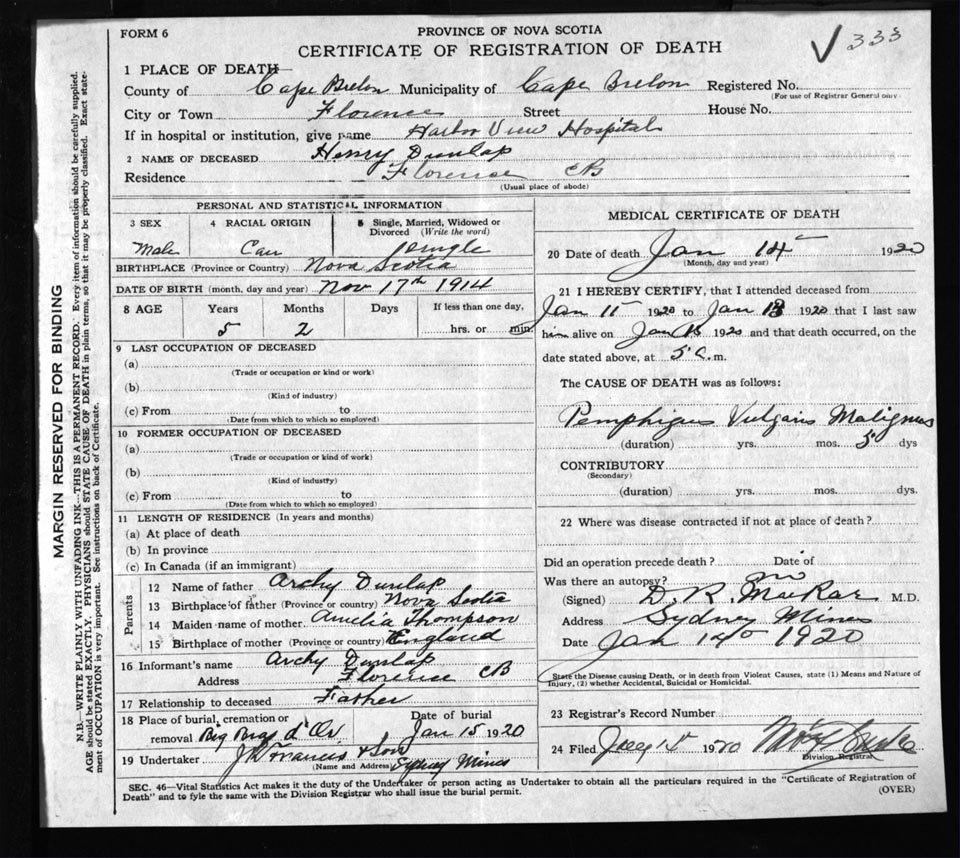 FORM 6
PROVINCE OF NOVA SCOTIA
CERTIFICATE OF REGISTRATION OF DEATH
333
1 PLACE OF DEATH
County of Cape Breton Municipality of Cape Breton Registered No.
(For use of Registrar General only)
City or Town Florence Street House No.
If in hospital or institution, give name Harbor View Hospital
2 NAME OF DECEASED Henry Dunlap
Residence Florence CB
(Usual place of abode)
PERSONAL AND STATISTICAL INFORMATION
3 SEX 4 RACIAL ORIGIN 5 Single, Married, Widowed or Divorced (Write the word)
Male Can Single
BIRTHPLACE (Province or Country) Nova Scotia
DATE OF BIRTH (month, day and year) Nov 17th 1914
8 AGE Years Months Days If less than one day,
5 2 hrs. or min.
9 LAST OCCUPATION OF DECEASED
(a)
(Trade or occupation or kind or work)
(b)
(Kind of industry)
(c) From to
(Date from which to which so employed)
10 FORMER OCCUPATION OF DECEASED
(a)
(Trade or occupation or kind of work)
(b)
(Kind of industry)
(c) From to
(Date from which to which so employed)
11 LENGTH OF RESIDENCE (In years and months)
(a) At place of death
(b) In province
(c) In Canada (if an immigrant)
Parents
12 Name of father Archy Dunlap
13 Birthplace of father (Province or country) Nova Scotia
14 Maiden name of mother Amelia Thompson
15 Birthplace of mother (Province or country) England
16 Informant's name Archy Dunlap
Address Florence CB
17 Relationship to deceased Father
18 Place of burial, cremation or removal Big Bras d'Or Date of burial Jan 15 1920
19 Undertaker J D Francis & Son
(Name and Address) Sydney Mines
MEDICAL CERTIFICATE OF DEATH
20 Date of death Jan 14 1920
(Month, day and year)
21 I HEREBY CERTIFY, that I attended deceased from
Jan 11 1920 to Jan 13 1920 that I last saw
him alive on Jan 1920 and that death occurred, on the
date stated above, at 5 a.m.
The CAUSE OF DEATH was as follows:
Pemphigus Vulgaris Malignus
(duration) yrs. mos. 5 dys
CONTRIBUTORY
(Secondary)
(duration) yrs. mos. dys.
22 Where was disease contracted if not at place of death?
Did an operation precede death? Date of
Was there an autopsy? no
(Signed) D. R. MacRae M.D.
Address Sydney Mines
Date Jan 14 1920
State the Disease causing Death, or in death from Violent Causes, state (1) Means and Nature of
Injury, (2) whether Accidental, Suicidal or Homicidal.
23 Registrar's Record Number
24 Filed 1920
Division Registrar
SEC. 46—Vital Statistics Act makes it the duty of the Undertaker or person acting as Undertaker to obtain all the particulars required in the "Certificate of Registration of
Death" and to fyle the same with the Division Registrar who shall issue the burial permit. (OVER)
MARGIN RESERVED FOR BINDING
N.B.—WRITE PLAINLY WITH UNFADING INK—THIS IS A PERMANENT RECORD. Every item of information should be carefully supplied.
AGE should be stated EXACTLY. PHYSICIANS should STATE CAUSE OF DEATH in plain terms, so that it may be properly classified. Exact state-
ment of OCCUPATION is very important. See instructions on back of Certificate.